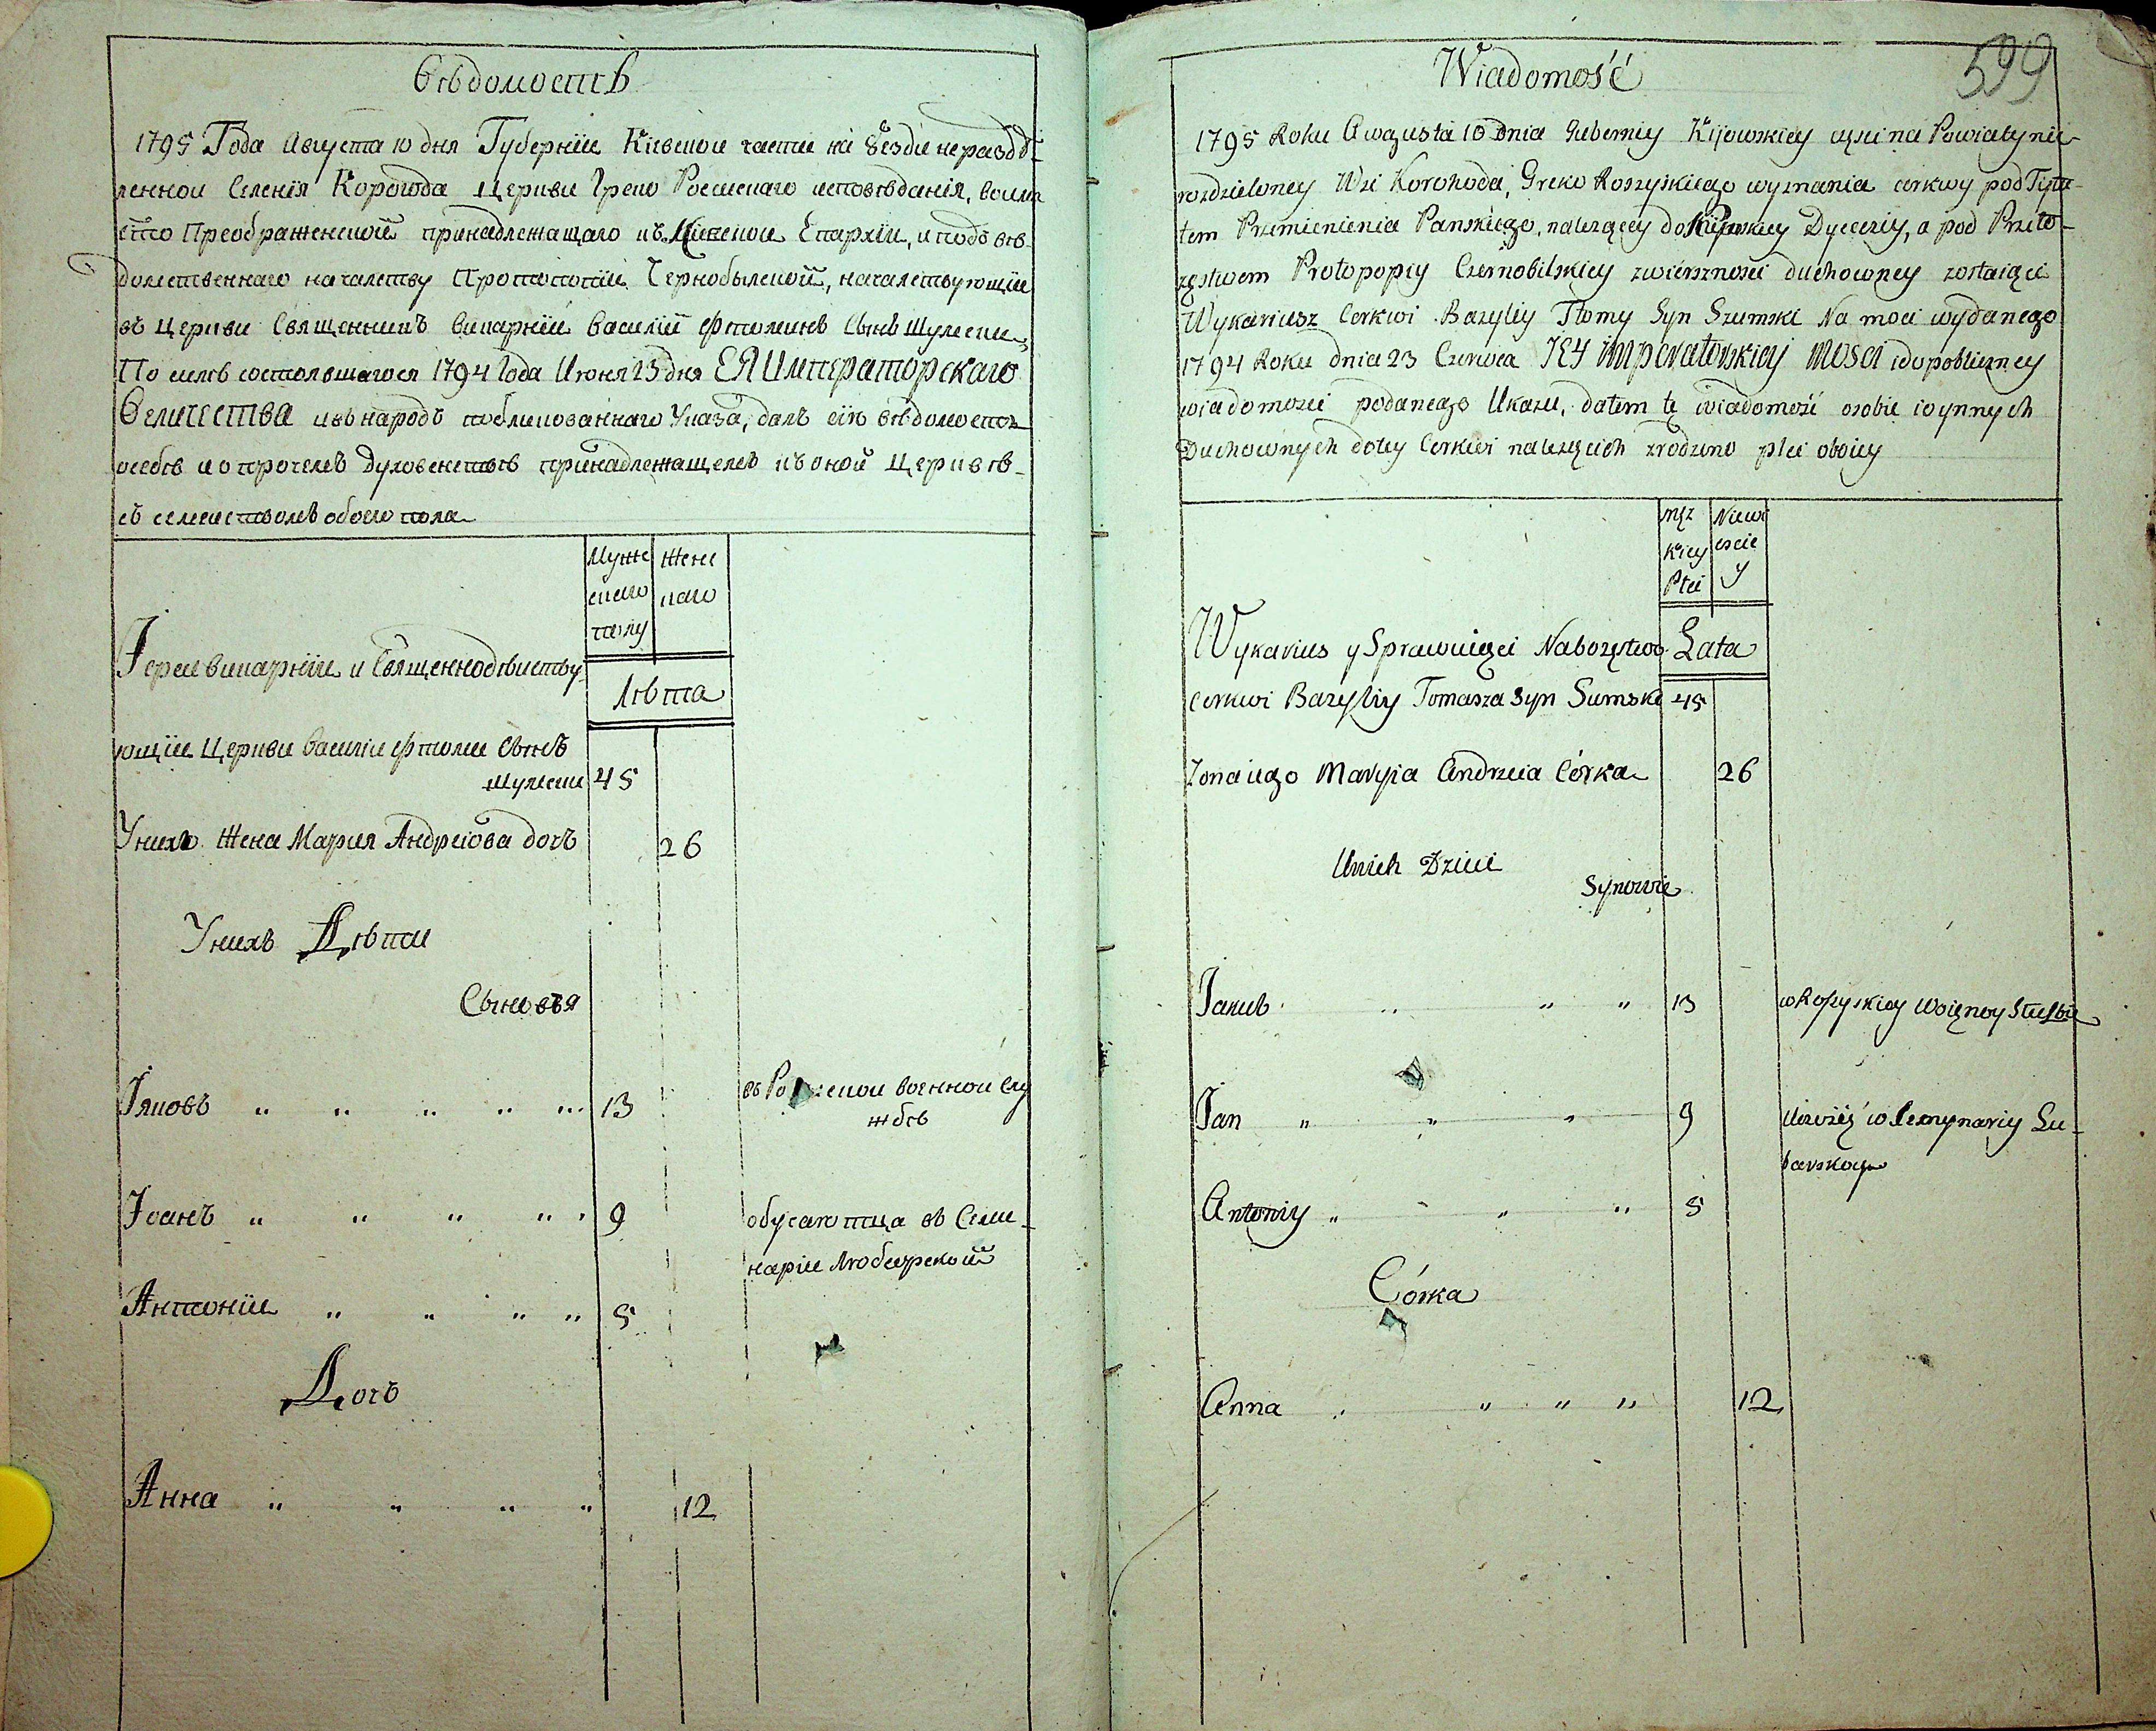 Вѣдомость
1795 Года Августа 10 дня Губерніи Кіевскои части на Уезди нераздѣ-
леннои Селенія Корогода Церкви Греко Россискаго исповѣданія, во имя
его Преображенской принадлежащаго къ Киевской Епархіи, и подъ вѣ-
домственнаго началству Протопопіи Чернобылской, началствующіи
въ Церкви Священникъ викарніи Василій Фтоминъ Сынъ Шумски
По силѣ состоявшагося 1794 Года Июня 23 дня ЕЯ Императорскаго
Величества и въ народъ публикованнаго Указа, далъ сію вѣдомость
о себѣ и о прочемъ духовенствѣ принадлежащемъ къ оной Церквѣ-
съ семействомъ обоего пола
Муже Жен
скаго скаго
полу
Іереи викарніи и Священнодѣиству
Лѣта
ющіи Церкви Василіи Фтоми Сынъ
Шумски 45
У нихъ Жена Мария Андреіова дочъ 26
У нихъ Дѣти
Сыновя
Іяковъ " " " " " 13 въ Ро сской военнои Слу
жбѣ
Іоанъ " " " " 9 обучаютца въ Семи-
наріи Любарской
Антоніи " " " " 5
Дочъ
Анна " " " " 12
599
Wiadomość
1795 Roku Awgusta 10 dnia Guberniy Kijowskiey części na Powiaty nie
rozdzieloney Wsi Korohoda, Greko Roszyskiego wyznania cerkwy pod Tytu-
łem Przmienienia Panskiego, nalezącey do Kijowskiey Dyeceziy, a pod Przeło-
zęstwem Protopopiy Czernobilskiey zwiersznosci duchowney zostaiąci
Wykariusz Cerkwi Bazyliy Ftomy Syn Szumski Na moci wydanego
1794 Roku dnia 23 Czerwca JEY imperatorskiey mosci i do publiczney
wiadomosci podanego Ukazu, datem tę wiadomość o sobie i o ynnych
Duchownych do tey Cerkwi nalezęcich z rodzino płci oboiey
męz Niewi
kiey escie
Płci y
Wykarius y Sprawuięci Nabozęstwo Lata
Cerkwi Bazyliy Tomasza Syn Sumski 45
Zona iego Maryia Andrzeia Córka 26
U nich Dzieci
Synowie
Jakub " " " 13 w Roszyskiey Woięnney Służbie
Jan " " " 9 Uczoiię w Semynariy Lu-
barskoy
Antoniy " " " 5
Córka
Anna " " " " 12